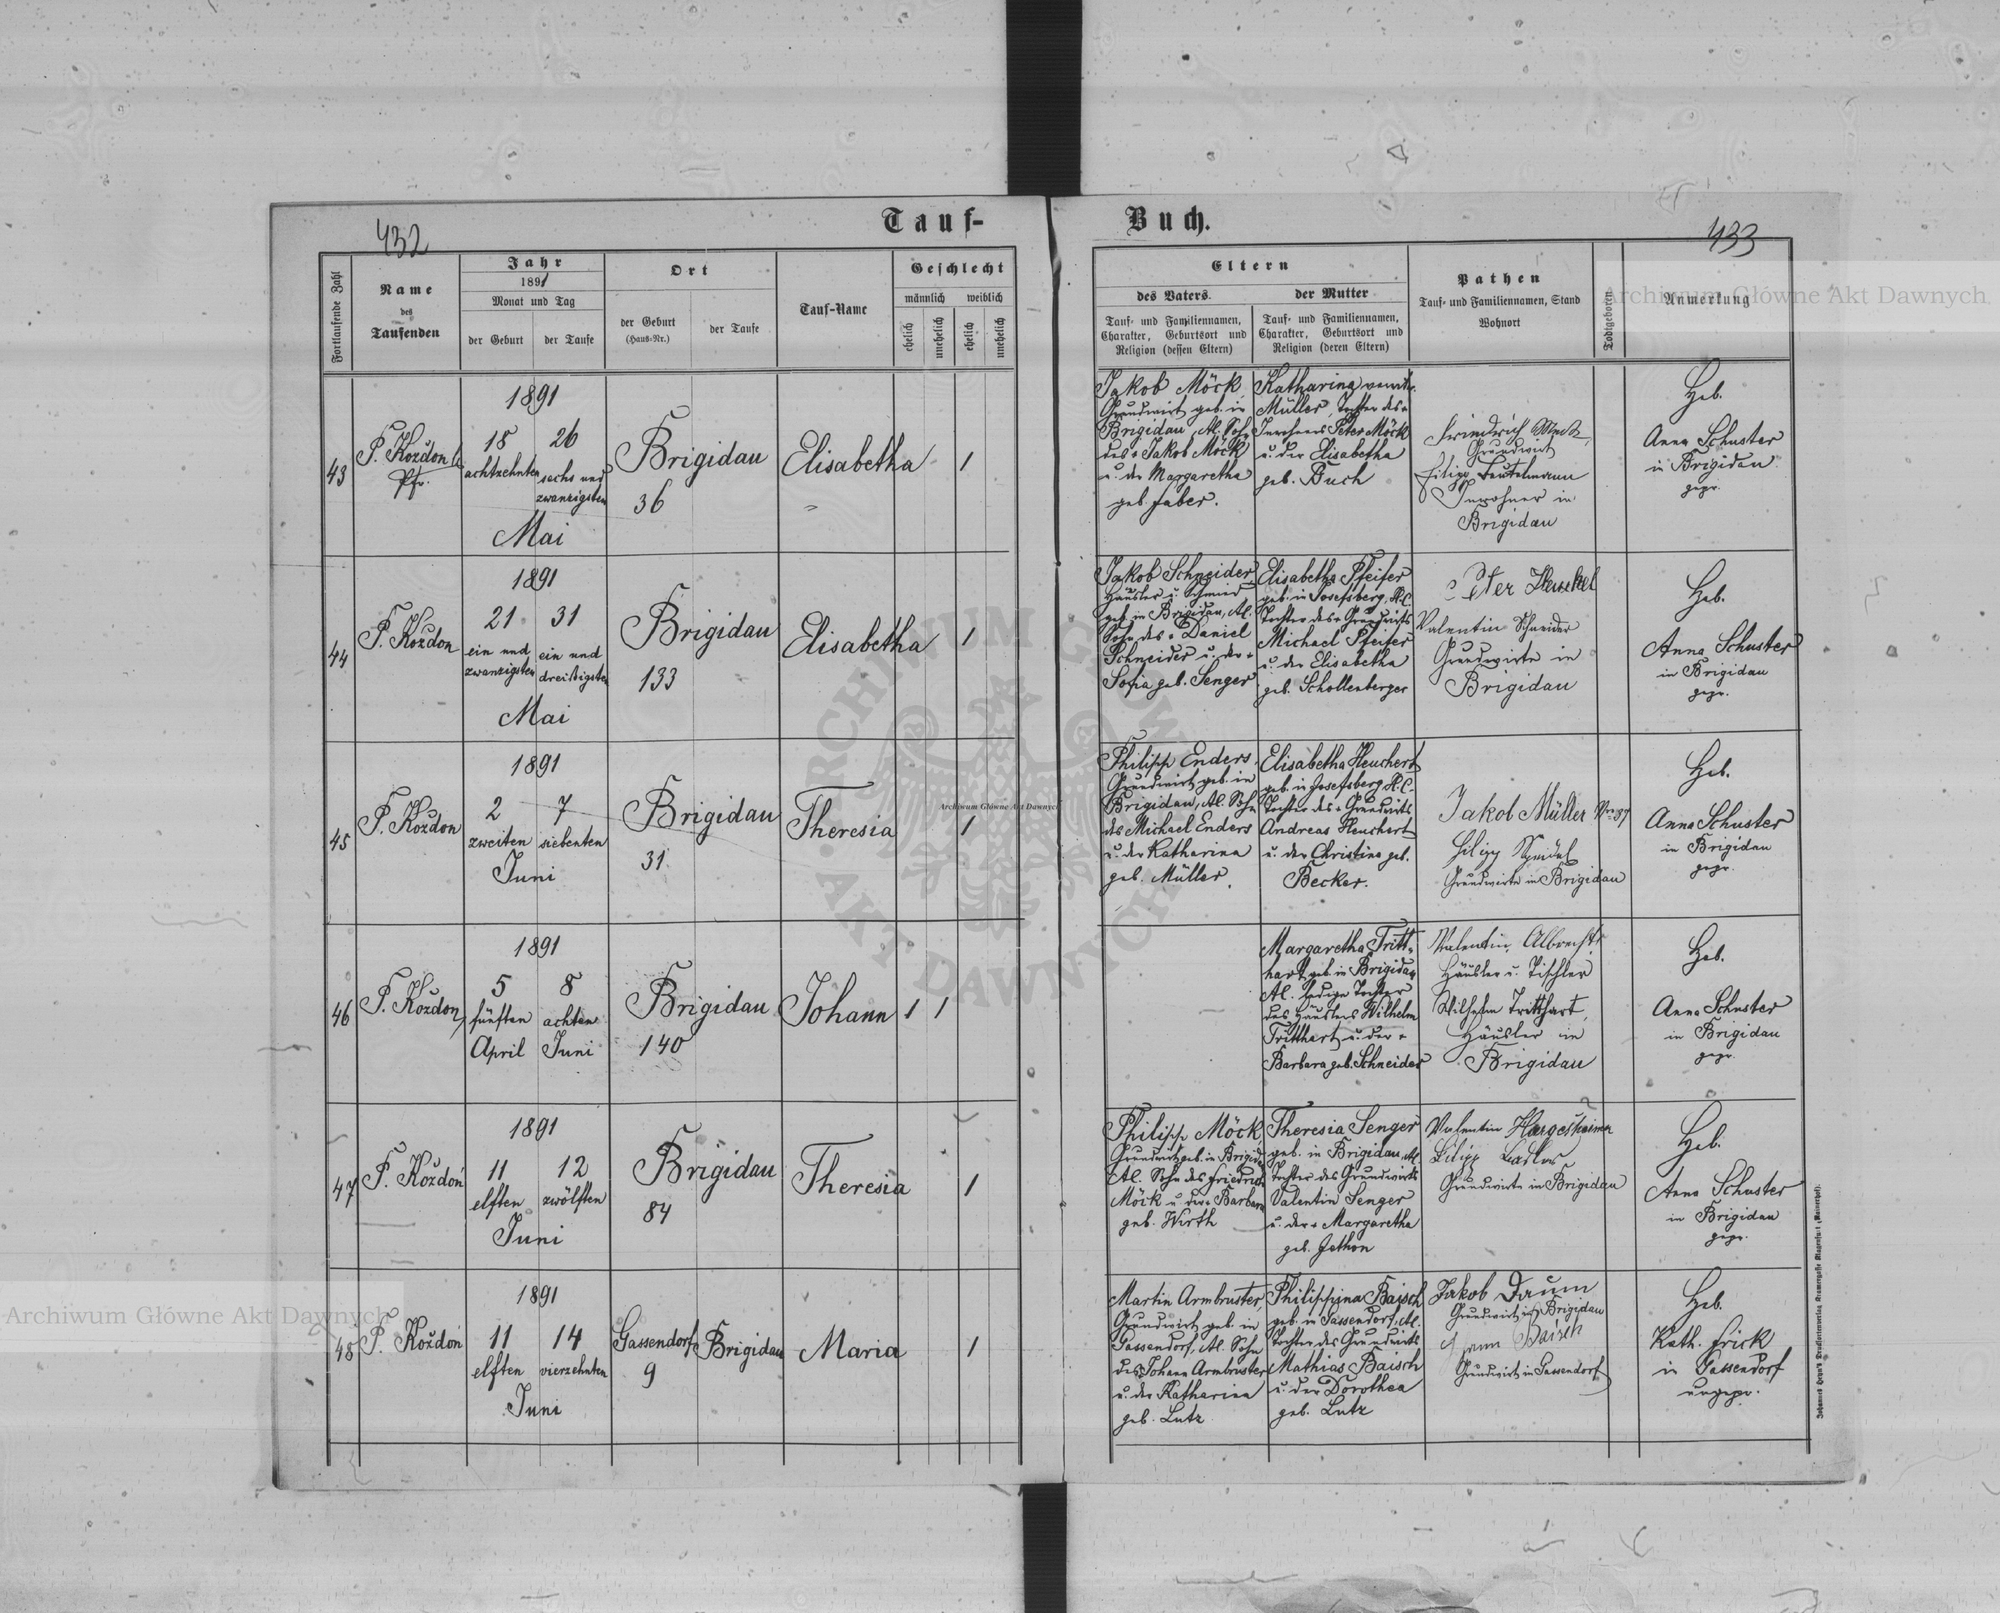 432
Tauf-
Buch.
433
Fortlaufende Zahl
Name
des
Taufenden
Jahr
1891
Monat und Tag
der Geburt
der Taufe
Ort
der Geburt
(Haus-Nr.)
der Taufe
Tauf-Name
Geschlecht
männlich
weiblich
ehelich
unehelich
ehelich
unehelich
Eltern
des Vaters
der Mutter
Tauf- und Familiennamen,
Charakter, Geburtsort und
Religion (dessen Eltern)
Tauf- und Familiennamen,
Charakter, Geburtsort und
Religion (deren Eltern)
Pathen
Tauf- und Familiennamen, Stand
Wohnort
Todtgeboren
Anmerkung
43
P. Koždoń
Pfr.
1891
18
achtzehnten
26
sechs und
zwanzigsten
Mai
Brigidau
36
Elisabetha
1
Jakob Möck
Grundwirt geb. in
Brigidau, Al. Sohn
des + Jakob Möck
u. der Margaretha
geb. Faber.
Katharina
Müller, Tochter des +
Inwohners Peter Möck
u. der Elisabetha
geb. Buch
Friedrich Möck,
Grundwirt
Filipp Beutelmann
Inwohner in
Brigidau
Heb.
Anna Schuster
in Brigidau
gepr.
44
P. Koždon
1891
21
ein und
zwanzigsten
31
ein und
dreißigsten
Mai
Brigidau
133
Elisabetha
1
Jakob Schneider
Häusler u. Schmied
geb. in Brigidau, Al.
Sohn des + Daniel
Schneider u. der +
Sofia geb. Senger
Elisabetha Pfeifer
geb. in Josefsberg, H.C.
Tochter des + Grundwirts
Michael Pfeifer
u. der Elisabetha
geb. Schollenberger
Peter Henkel
Valentin Schneider
Grundwirte in
Brigidau
Heb.
Anna Schuster
in Brigidau
gepr.
45
P. Koždon
1891
2
zweiten
7
siebenten
Juni
Brigidau
31
Theresia
1
Philipp Enders
Grundwirt geb. in
Brigidau, Al. Sohn
des Michael Enders
u. der Katharina
geb. Müller.
Elisabetha Heuchert
geb. in Josefsberg H.C.
Tochter des + Grundwirts
Andreas Heuchert
u. der Christina geb.
Becker.
Jakob Müller Nro 87
Filipp Speidel
Grundwirte in Brigidau
Heb.
Anna Schuster
in Brigidau
gepr.
46
P. Koždon
1891
5
fünften
April
8
achten
Juni
Brigidau
140
Johann
1 1
Margaretha Tritt-
hart geb. in Brigidau
Al. ledige Tochter
des Häuslers Wilhelm
Tritthart u. der +
Barbara geb. Schneider
Valentin Albrecht
Häusler u. Tischler
Wilhelm Tritthart,
Häusler in
Brigidau
Heb.
Anna Schuster
in Brigidau
gepr.
47
P. Koždoń
1891
11
elften
12
zwölften
Juni
Brigidau
84
Theresia
1
Philipp Möck
Grundwirt geb. in Brigidau
Al. Sohn des Friedrich
Möck u. der + Barbara
geb. Wirth
Theresia Senger
geb. in Brigidau, Al.
Tochter des Grundwirts
Valentin Senger
u. der + Margaretha
geb. Jethon
Valentin Hargesheimer
Filipp
Grundwirte in Brigidau
Heb.
Anna Schuster
in Brigidau
gepr.
48
P. Koždoń
1891
11
elften
14
vierzehnten
Juni
Gassendorf
9
Brigidau
Maria
1
Martin Armbruster
Grundwirt geb. in
Gassendorf, Al. Sohn
des Johann Armbruster
u. der Katharina
geb. Lutz
Philippina Baisch
geb. in Gassendorf, Al.
Tochter des Grundwirts
Mathias Baisch
u. der Dorothea
geb. Lutz
Jakob Daum
Grundwirt in Brigidau
Baisch
Grundwirt in Gassendorf
Heb.
Kath. Frick
in Gassendorf
ungepr.
Archiwum Główne Akt Dawnych
Archiwum Główne Akt Dawnych
Archiwum Główne Akt Dawnych
ARCHIWUM GŁÓWNE
AKT DAWNYCH